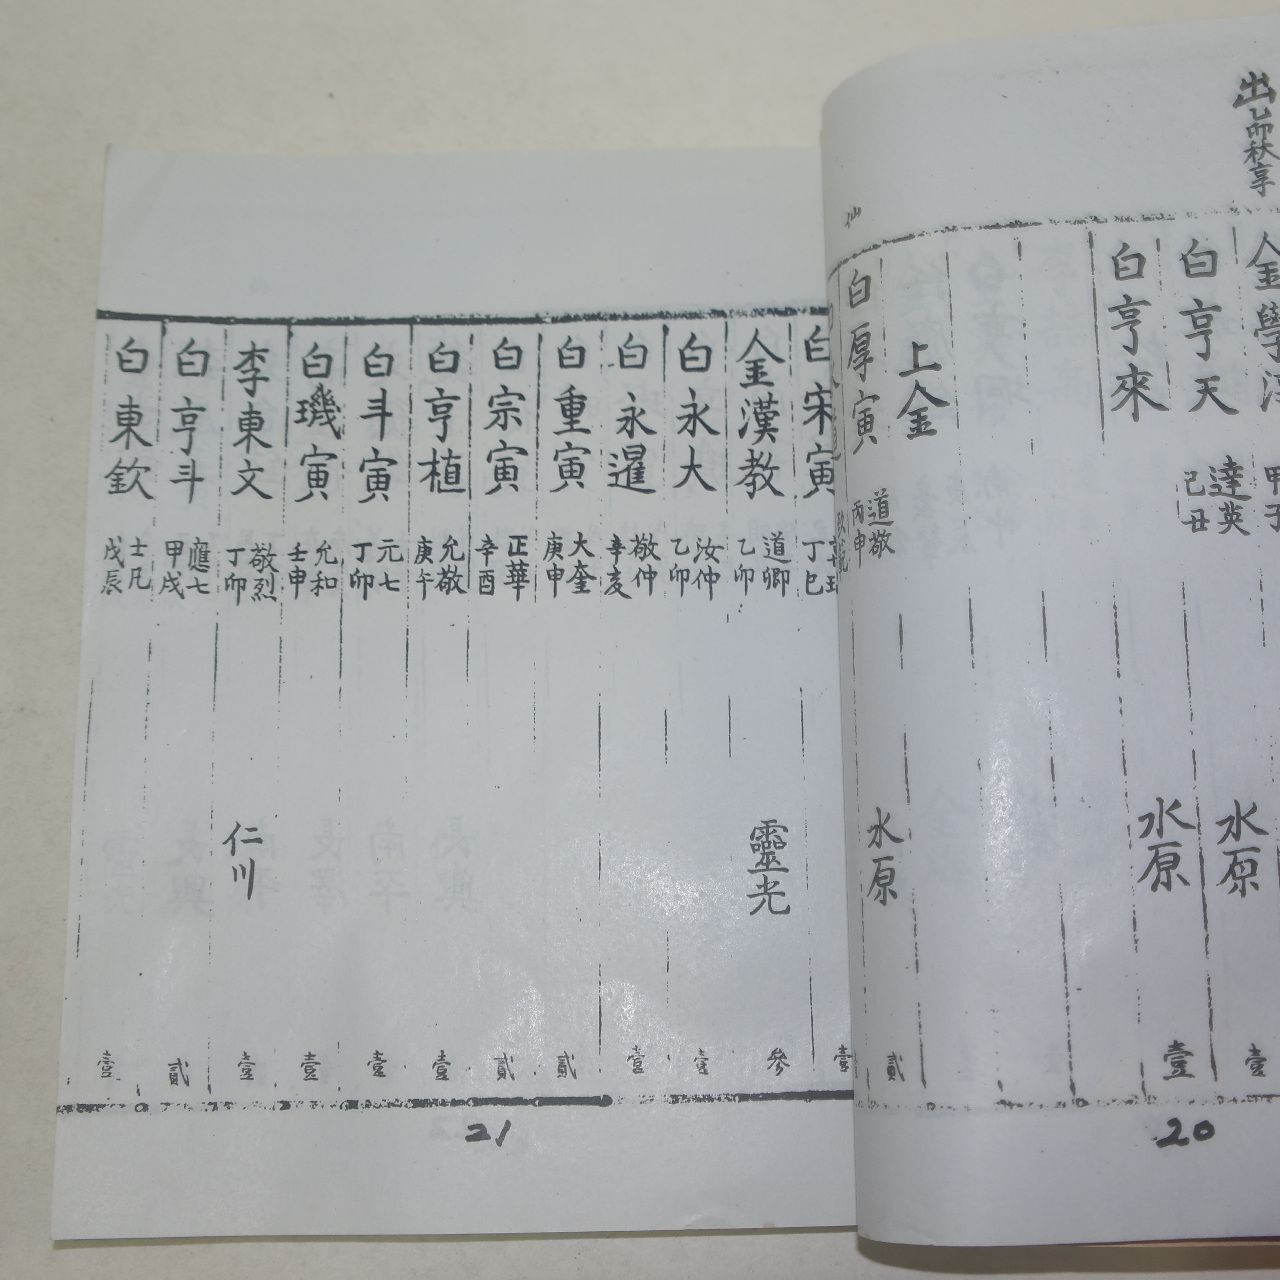 出 乙卯秋享
金學 甲子
白亨天 達英 己丑 水原 壹
白亨來 水原 壹
上金
白厚寅 道敬 丙申 水原 貳
20
白宋寅 丁巳 壹
金漢教 道卿 乙卯 靈光 參
白永大 汝仲 乙卯 壹
白永暹 敬仲 辛亥 壹
白重寅 大奎 庚申 貳
白宗寅 正華 辛酉 貳
白亨植 允敬 庚午 壹
白斗寅 元七 丁卯 壹
白璣寅 允和 壬申 壹
李東文 敬烈 丁卯 仁川 壹
白亨斗 應七 甲戌 貳
白東欽 士凡 戊辰 壹
21